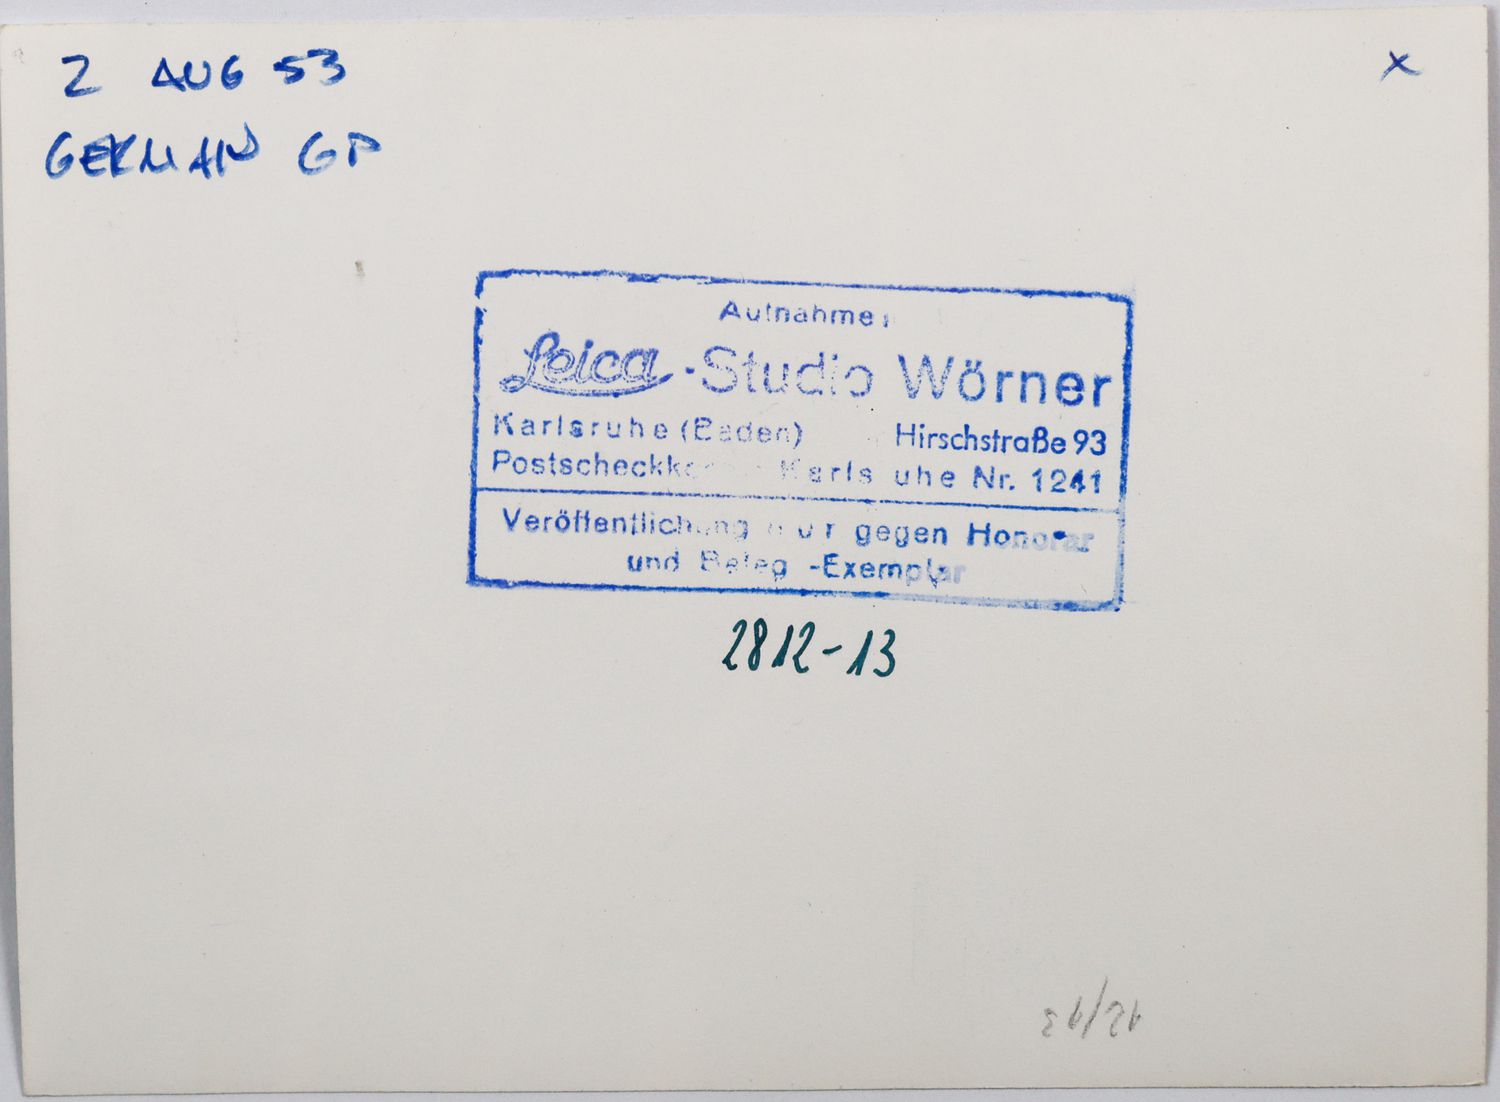 2 AUG 53
GERMAN GP
x
Aufnahme:
Leica-Studio Wörner
Karlsruhe (Baden) Hirschstraße 93
Karlsruhe Nr. 1241
Veröffentlichung nur gegen Honorar
und Beleg-Exemplar
2812-13